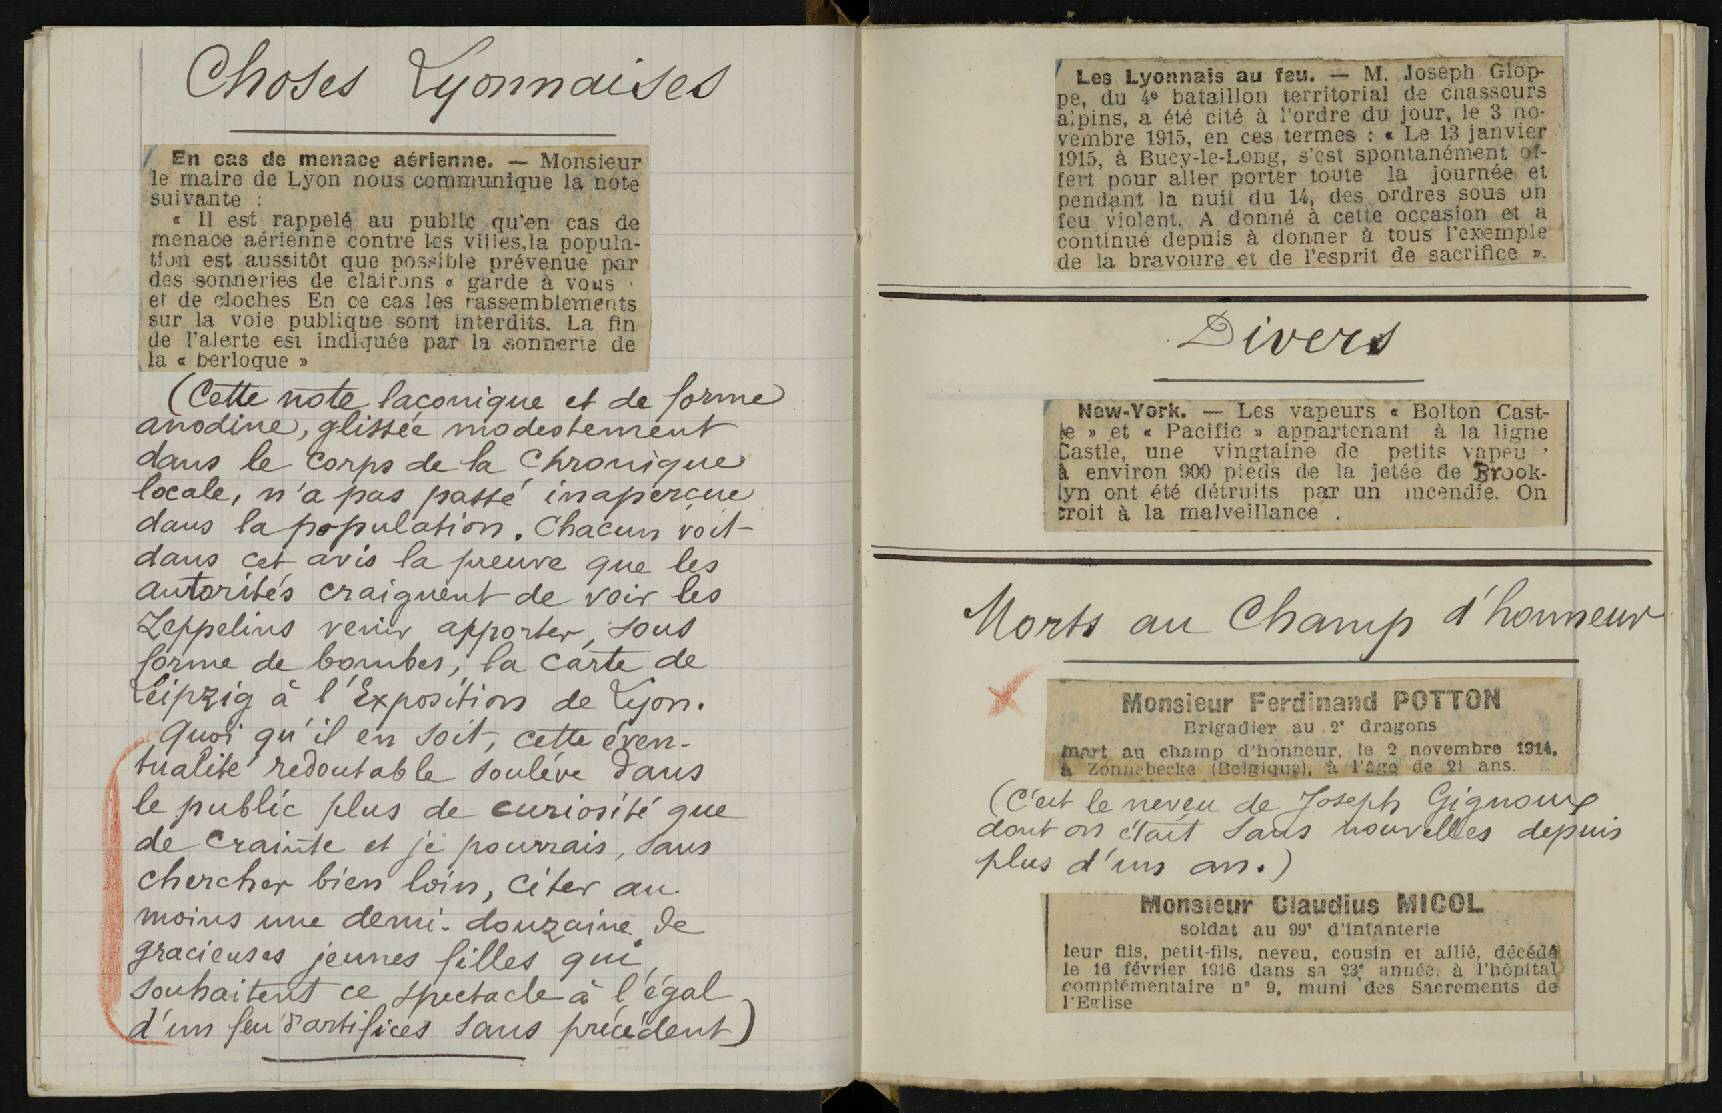 Choses Lyonnaises
En cas de menace aérienne. — Monsieur
le maire de Lyon nous communique la note
suivante :
« Il est rappelé au public qu'en cas de
menace aérienne contre les villes, la popula-
tion est aussitôt que possible prévenue par
des sonneries de clairons « garde à vous
et de cloches En ce cas les rassemblements
sur la voie publique sont interdits. La fin
de l'alerte est indiquée par la sonnerie de
la « berloque »
(Cette note laconique et de forme
anodine, glissée modestement
dans le corps de la Chronique
locale, n'a pas passé inaperçue
dans la population. Chacun voit
dans cet avis la preuve que les
autorités craignent de voir les
Zeppelins venir apporter, sous
forme de bombes, la carte de
Leipzig à l'Exposition de Lyon.
Quoi qu'il en soit, cette éven-
tualité redoutable soulève dans
le public plus de curiosité que
de crainte et je pourrais, sans
chercher bien loin, citer au
moins une demi-douzaine de
gracieuses jeunes filles qui
souhaitent ce spectacle à l'égal
d'un feu d'artifices sans précédent)
Les Lyonnais au feu. — M. Joseph Glop-
pe, du 4e bataillon territorial de chasseurs
alpins, a été cité à l'ordre du jour, le 3 no-
vembre 1915, en ces termes : « Le 13 janvier
1915, à Bucy-le-Long, s'est spontanément of-
fert pour aller porter toute la journée et
pendant la nuit du 14, des ordres sous un
feu violent. A donné à cette occasion et a
continué depuis à donner à tous l'exemple
de la bravoure et de l'esprit de sacrifice ».
Divers
New-York. — Les vapeurs « Bolton Cast-
le » et « Pacific » appartenant à la ligne
Castle, une vingtaine de petits vapeu
à environ 900 pieds de la jetée de Brook-
lyn ont été détruits par un incendie. On
croit à la malveillance.
Morts au Champ d'honneur
Monsieur Ferdinand POTTON
Brigadier au 2e dragons
mort au champ d'honneur, le 2 novembre 1914,
à Zonnebecke (Belgique), à l'âge de 21 ans.
(C'est le neveu de Joseph Gignoux
dont on était sans nouvelles depuis
plus d'un an.)
Monsieur Claudius MICOL
soldat au 99e d'infanterie
leur fils, petit-fils, neveu, cousin et allié, décédé
le 16 février 1916 dans sa 23e année, à l'hôpital
complémentaire n° 9, muni des Sacrements de
l'Eglise